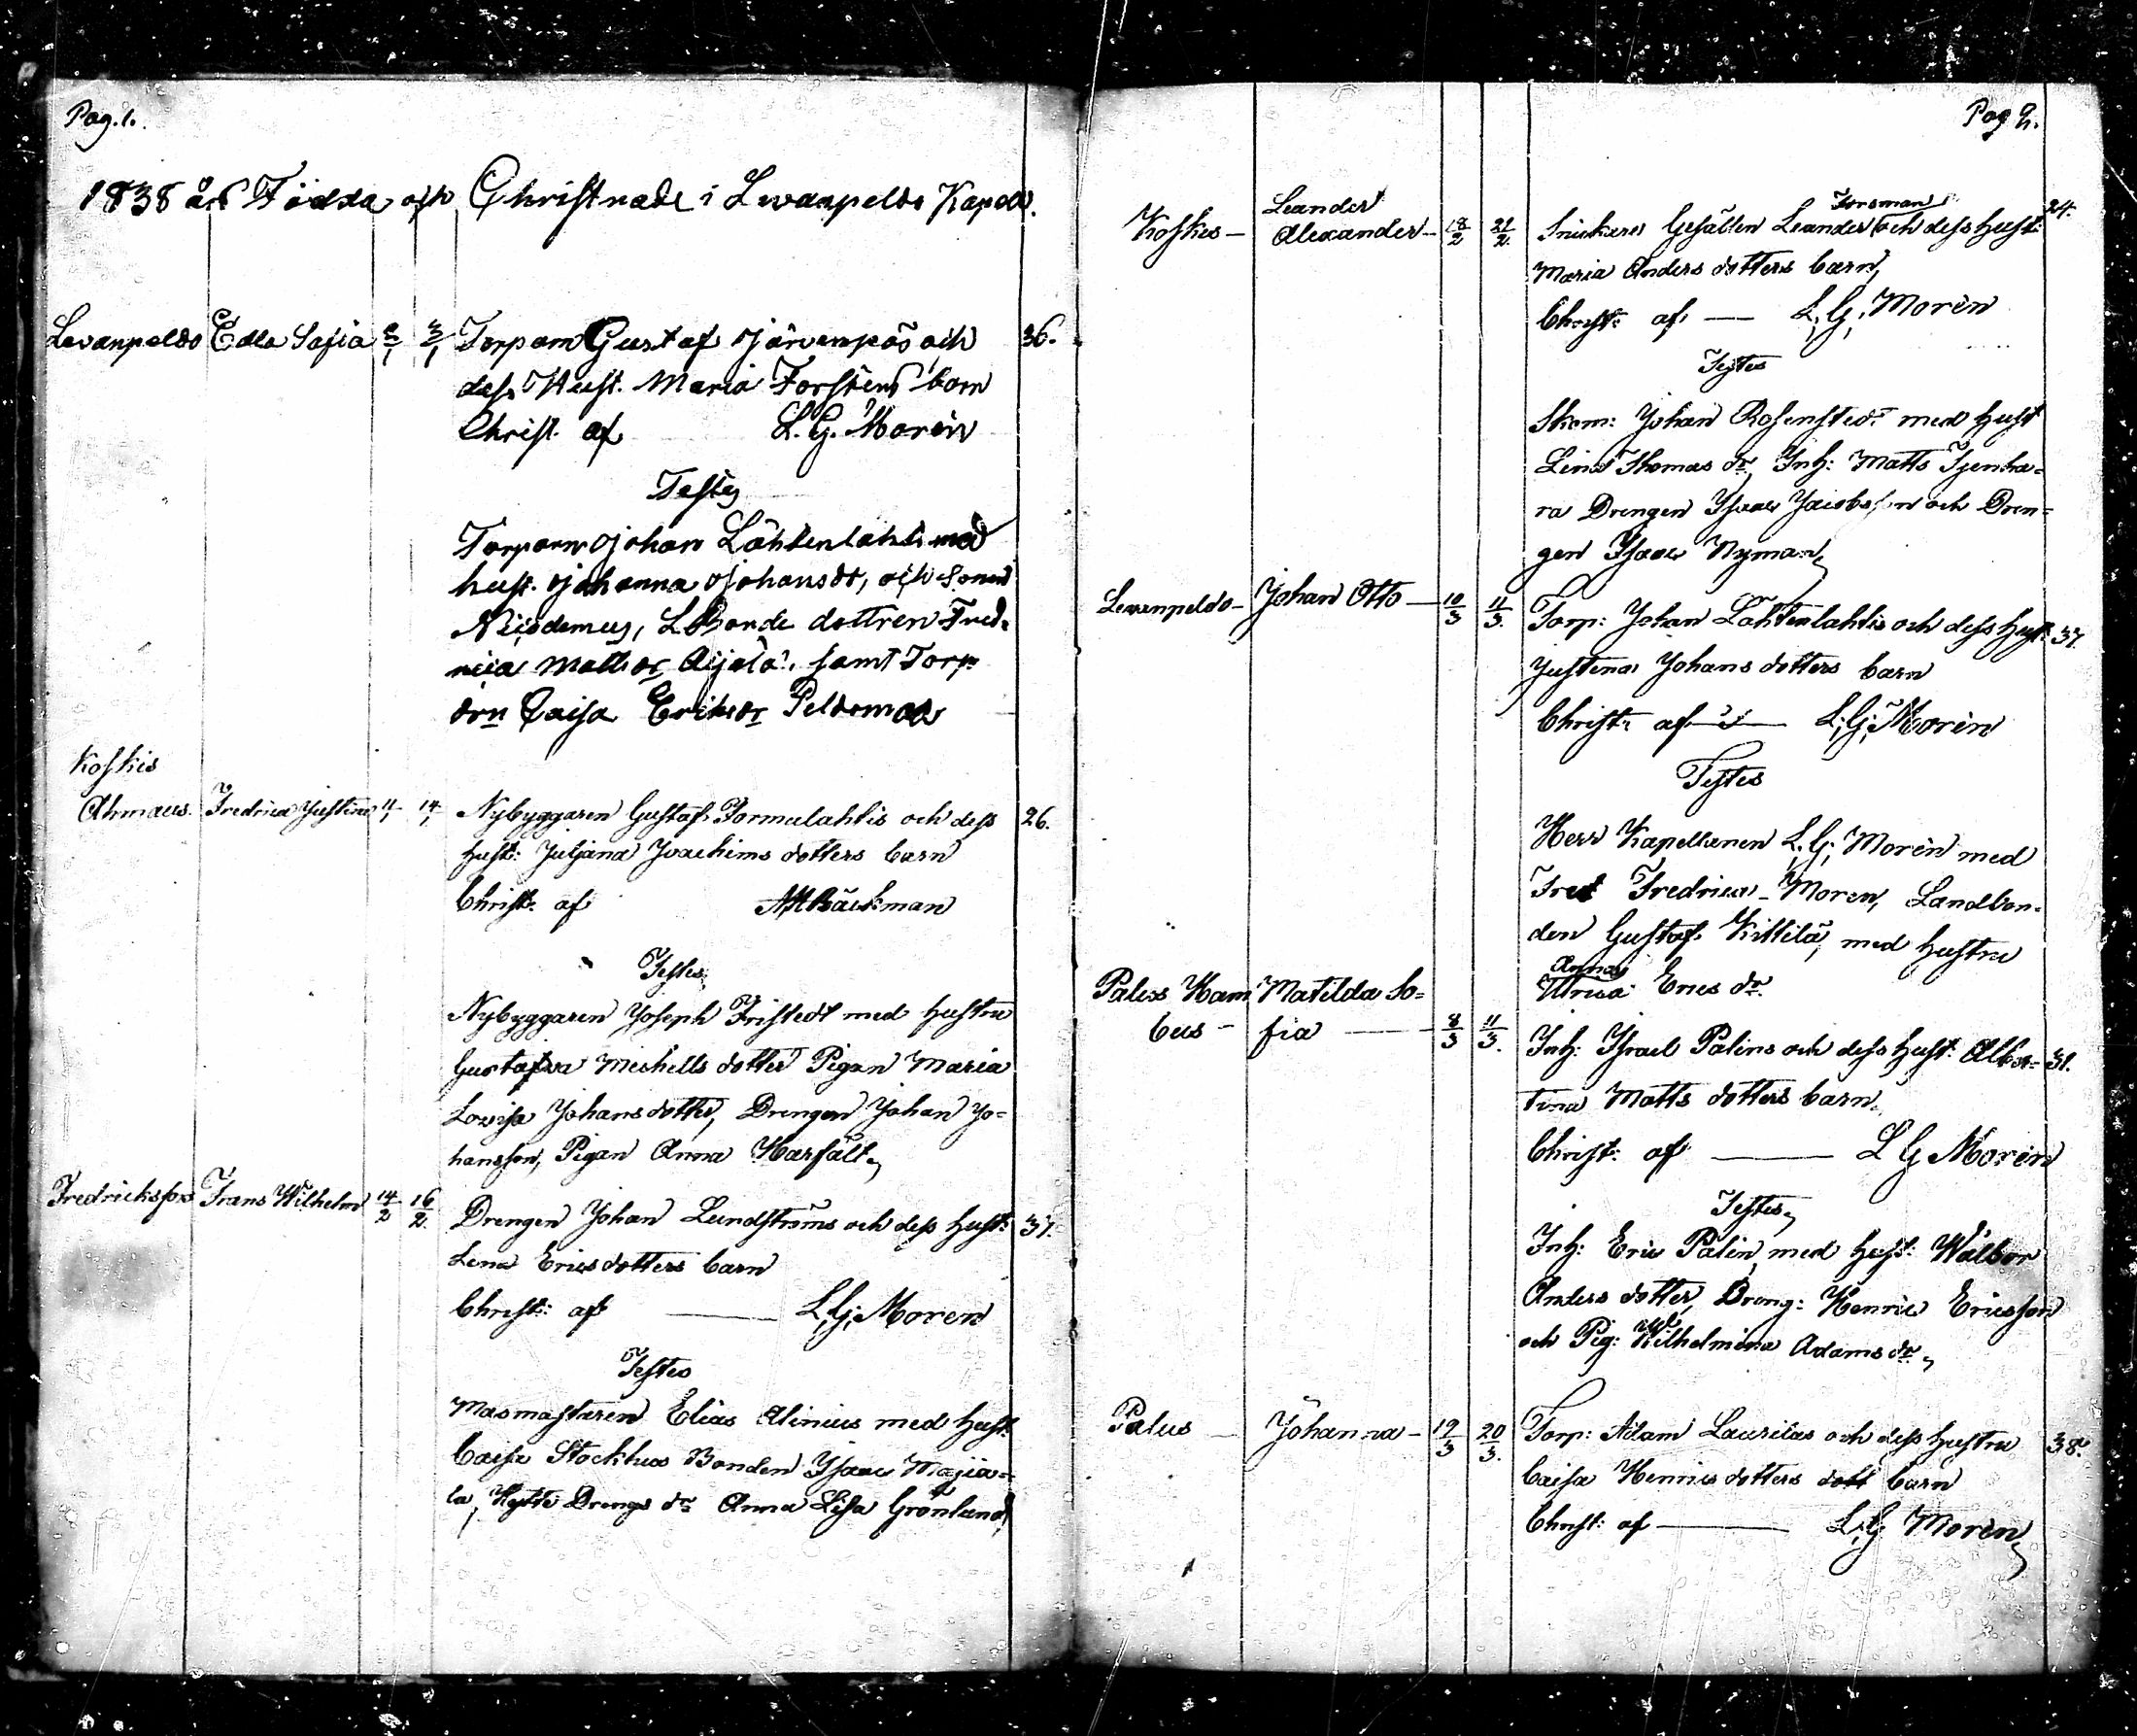 Pag. 1.
1838 års Födda och Christnade i Levanpelto Kapell.
Levanpelto Edla Sofia 2/1 3/1 Torparn Gustaf Järvenpäs och 36.
dess Hust. Maria Forstens barn
Christ. af L. G. Morén
Testes
Torparn Johan Lähtenlahti med
hust. Johanna Johansdr, och Sonen
Nicodemus, LBonde dottren Fred-
rica Mattsdr Äijälä, samt Torp
drn Caisa Eriksdr Peldomaa
Koskis
Ahmaus. Fredrica Justina 11/1 14/1 Nybyggaren Gustaf Tormulahtis och dess 26.
Hust: Juljana Joachims dotters barn
Christ: af Bäckman
Testes
Nybyggaren Joseph Fristedt med Hustru
Gustafva Michells dotter Pigan Maria
Lovisa Johansdotter, Drengen Johan Jo-
hansson, Pigan Anna Harfält
Fredricksfors Frans Wilhelm 14/2 16/2. Drengen Johan Lundströms och dess Hust: 37.
Lena Ericsdotters barn
Christ: af — L; G; Moren
Testes
Masmästaren Elias Alinius med Hust:
Caisa Stockhus Bonden Isaac Majia-
la, Hytte Drengs dr Anna Lisa Grönlund
Pag 2.
Koskis — Leander
Alexander — 18/2 21/2. Snickare Gesällen Leander Forsman och dess Hust: 24.
Maria Anders dotters barn,
Christ: af — L; G; Morén
Testes
Skom: Johan Rosenstedt med Hust
Lena Thomas dr, Inh: Matts Isenha-
ra Drengen Isaac Jacobsson och Dren-
gen Isaac Nyman
Levanpelto — Johan Otto — 10/3 11/3. Torp: Johan Lähtenlahtis och dess Hust: 37.
Justina Johans dotters barn
Christ: af — L; G; Morén
Testes
Herr Kapellanen L. G; Morén med
Fru Fredrica Moren, Landbon-
den Gustaf Kittilä, med Hustru
Anna
Ulrica Erics dr.
Palus Ham Matilda So-
bus — fia — 8/3 11/3. Inh: Israel Palins och dess Hust: Alber- 31.
tina Matts dotters barn
Christ: af — L G Morén
Testes
Inh: Eric Palin, med Hust: Walbor
Anders dotter, Dreng: Henric Ericsson
och Pig: Wilhelmina Adams dr
Palus — Johanna — 19/3 20/3. Torp: Adam Laurilas och dess Hustru 38.
Caisa Henrics dotters dott barn
Christ: af — L; G Morén